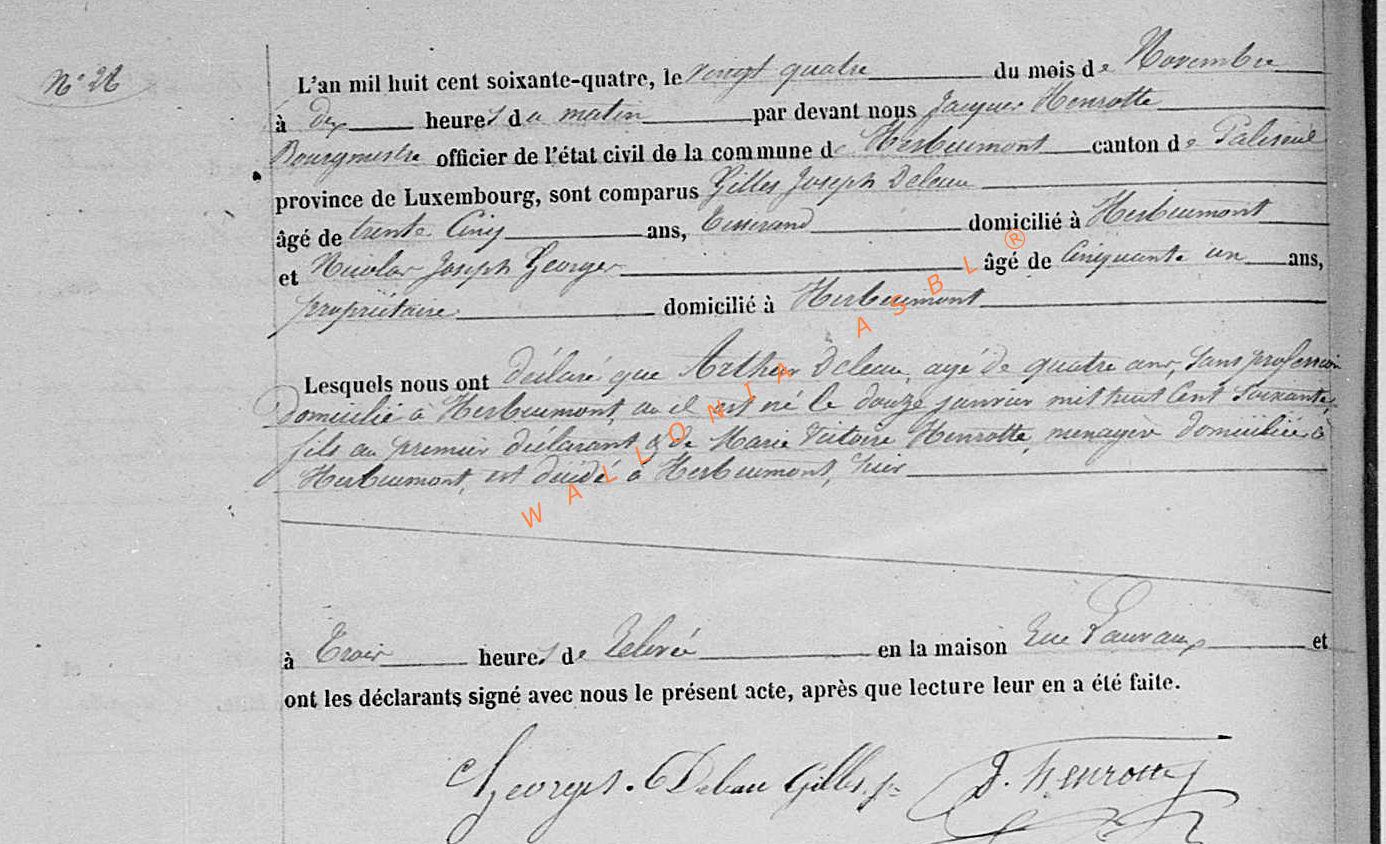 N° 26
L'an mil huit cent soixante-quatre, le vingt quatre du mois de Novembre
à dix heures du matin par devant nous Jacques Henrotte
Bourgmestre officier de l'état civil de la commune de Herbeumont canton de Paliseul
province de Luxembourg, sont comparus Gilles Joseph Deleau
âgé de trente Cinq ans, Tisserand domicilié à Herbeumont
et Nicolas Joseph Georges âgé de Cinquante un ans,
propriétaire domicilié à Herbeumont
Lesquels nous ont déclaré que Arthur Deleau, agé de quatre ans, Sans profession
Domicilié à Herbeumont, ou il est né le douze janvier mil huit Cent Soixante,
fils du premier déclarant & de Marie Victoire Henrotte, menagère domiciliée à
Herbeumont, est décédé à Herbeumont, hier
à Trois heures de Relevée en la maison Rue et
ont les déclarants signé avec nous le présent acte, après que lecture leur en a été faite.
Georges. Deleau Gilles J. Henrotte
WALLONIA ASBL ®